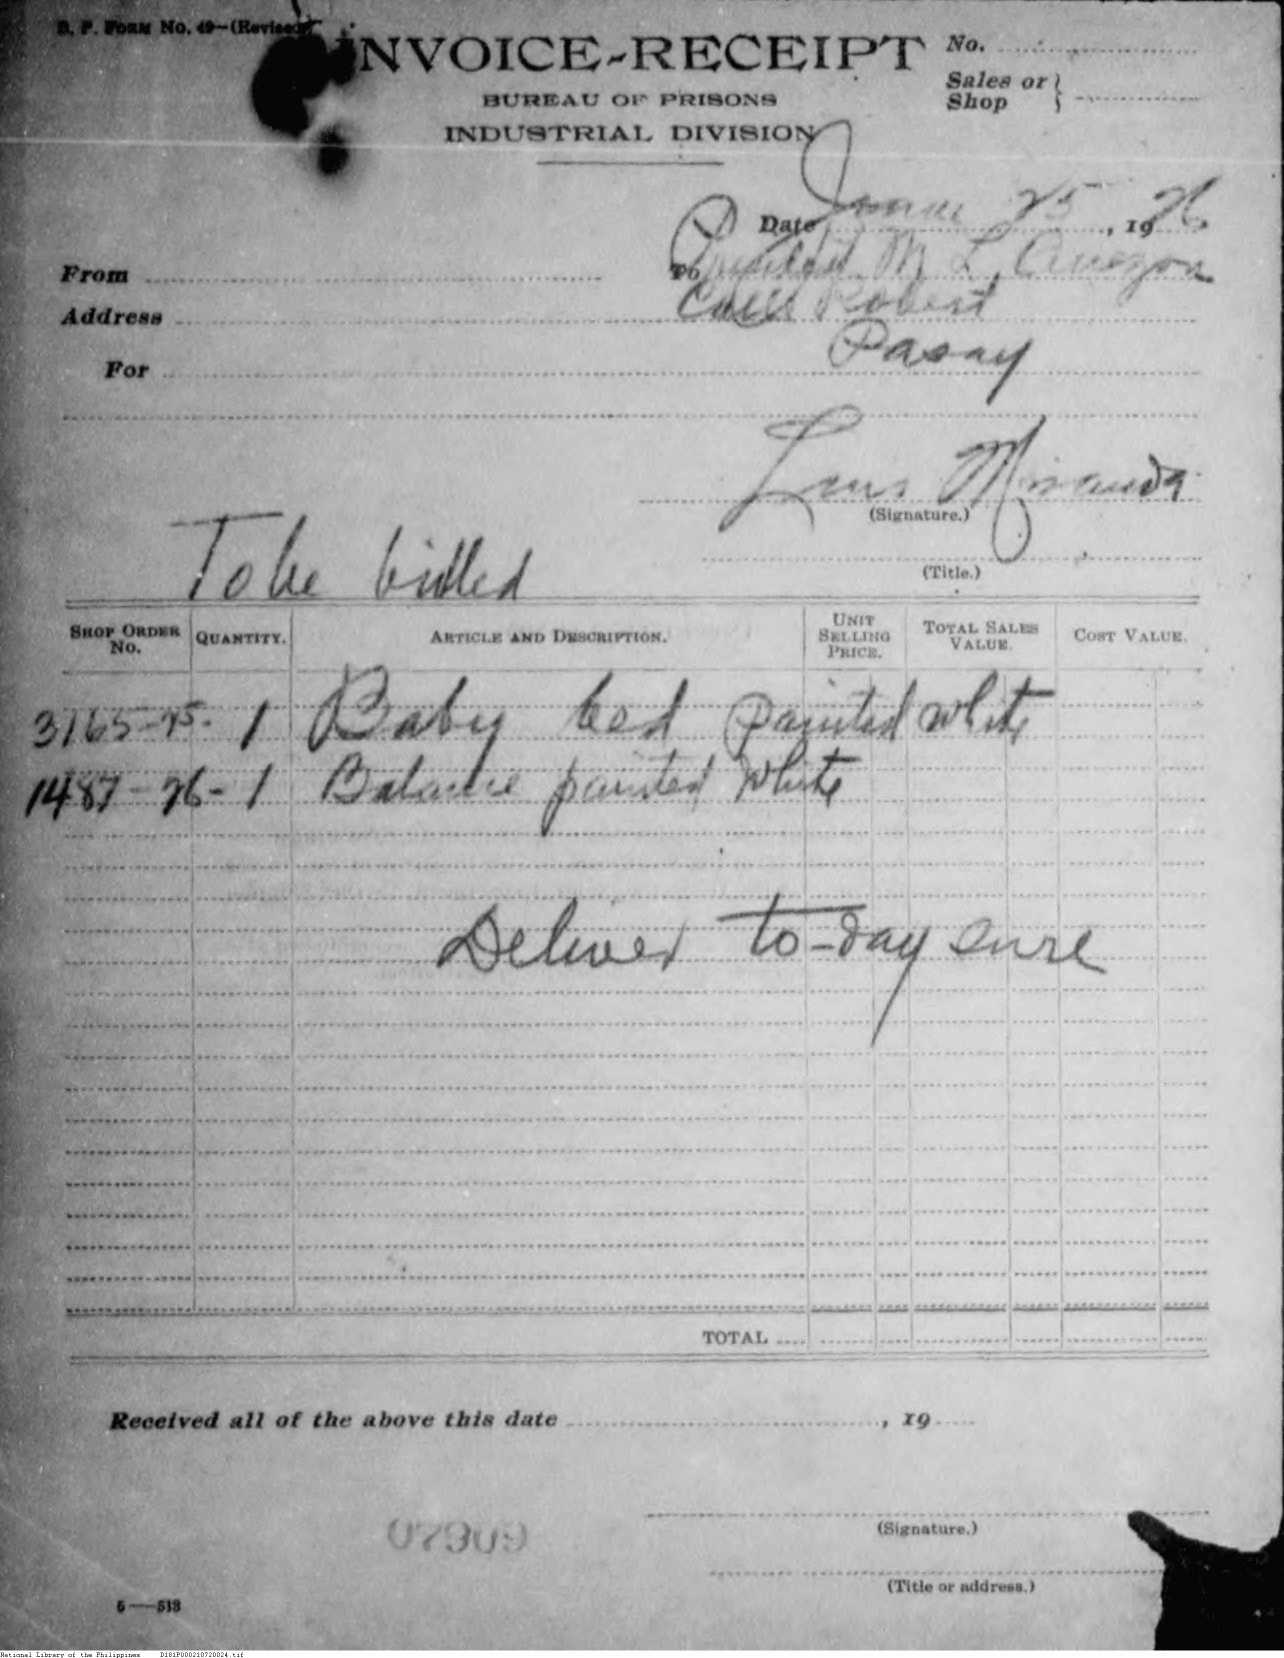 B. P. Form No. 49—(Revised)
INVOICE-RECEIPT
No.
Sales or
Shop
BUREAU OF PRISONS
INDUSTRIAL DIVISION
Date June 25, 1926
From
To President M. L. Quezon
Address
Calle Robert
For
Pasay
Luis Miranda
(Signature.)
(Title.)
To be billed
Shop Order No. Quantity. Article and Description. Unit Selling Price. Total Sales Value. Cost Value.
3165-25- 1 Baby bed painted white
1487-26- 1 Balance painted white
Deliver to-day sure
TOTAL
Received all of the above this date , 19
(Signature.)
(Title or address.)
5—513
National Library of the Philippines D181P000210720024.tif